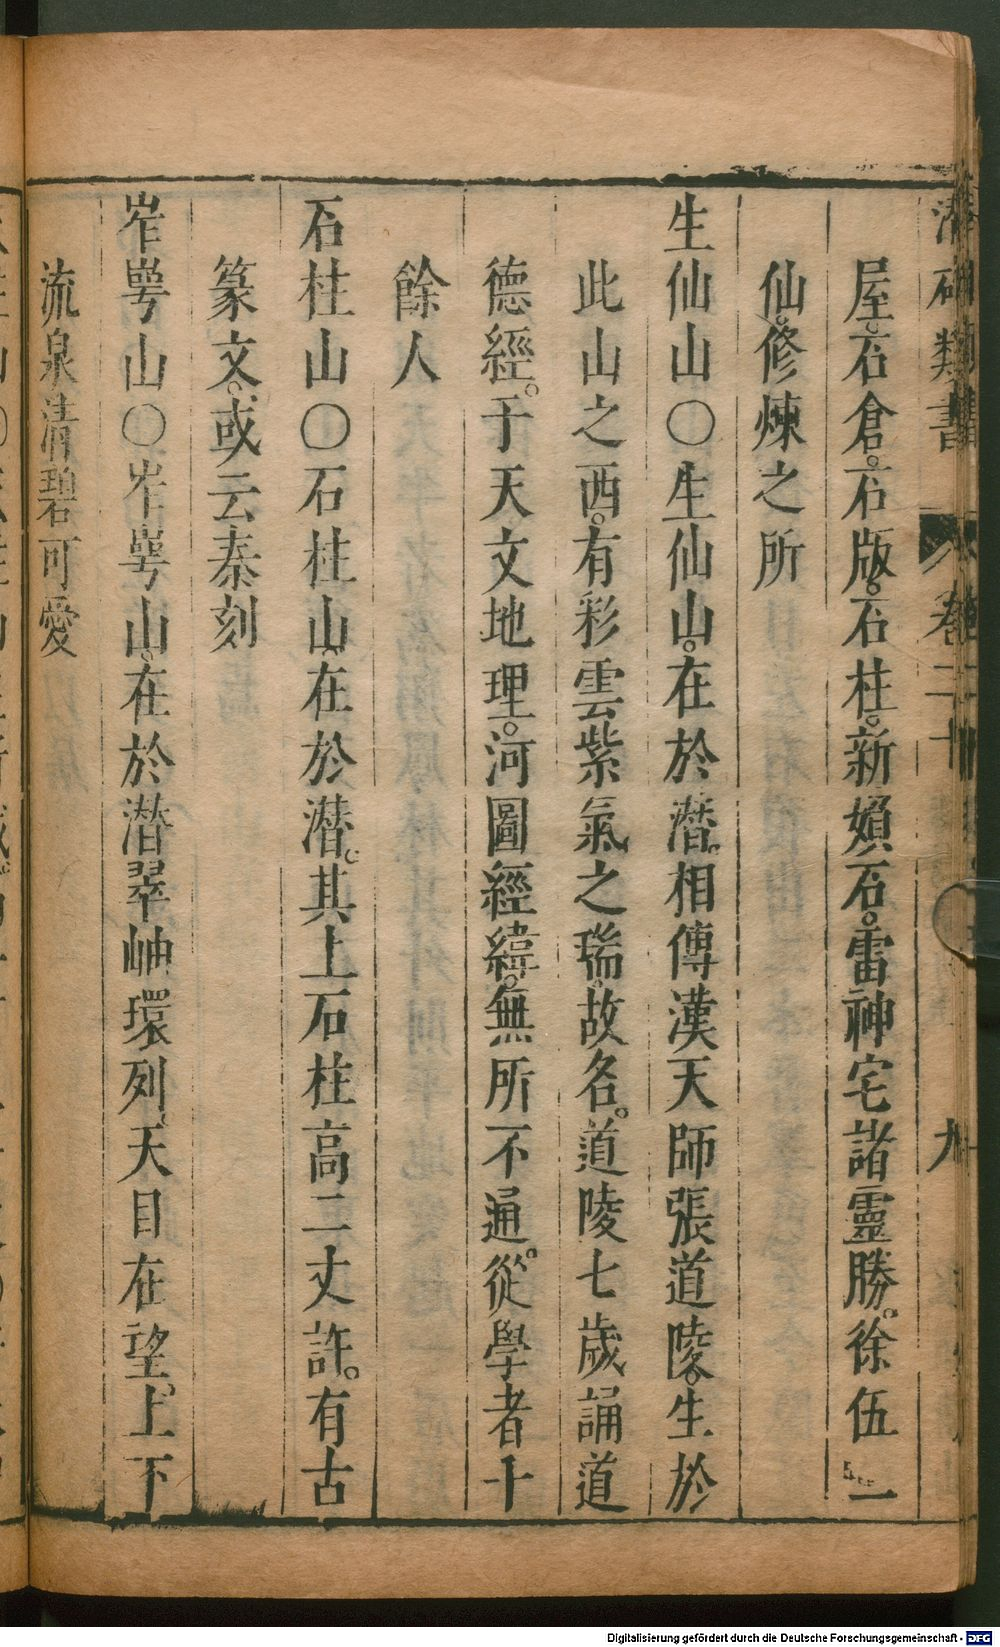 潛確類書 卷二十 九
屋。石倉。石版。石柱。新婦石。雷神宅諸靈勝。徐伍二
仙。修煉之所
生仙山〇生仙山。在於潛。相傳漢天師張道陵。生於
此山之西。有彩雲紫氣之瑞。故名。道陵七歲誦道
德經。于天文地理。河圖經緯。無所不通。從學者千
餘人
石柱山〇石柱山。在於潛。其上石柱高二丈許。有古
篆文。或云秦刻
岝崿山〇岝崿山。在於潛翠岫環列、天目在望。上下
流泉清碧可愛
Digitalisierung gefördert durch die Deutsche Forschungsgemeinschaft - DFG